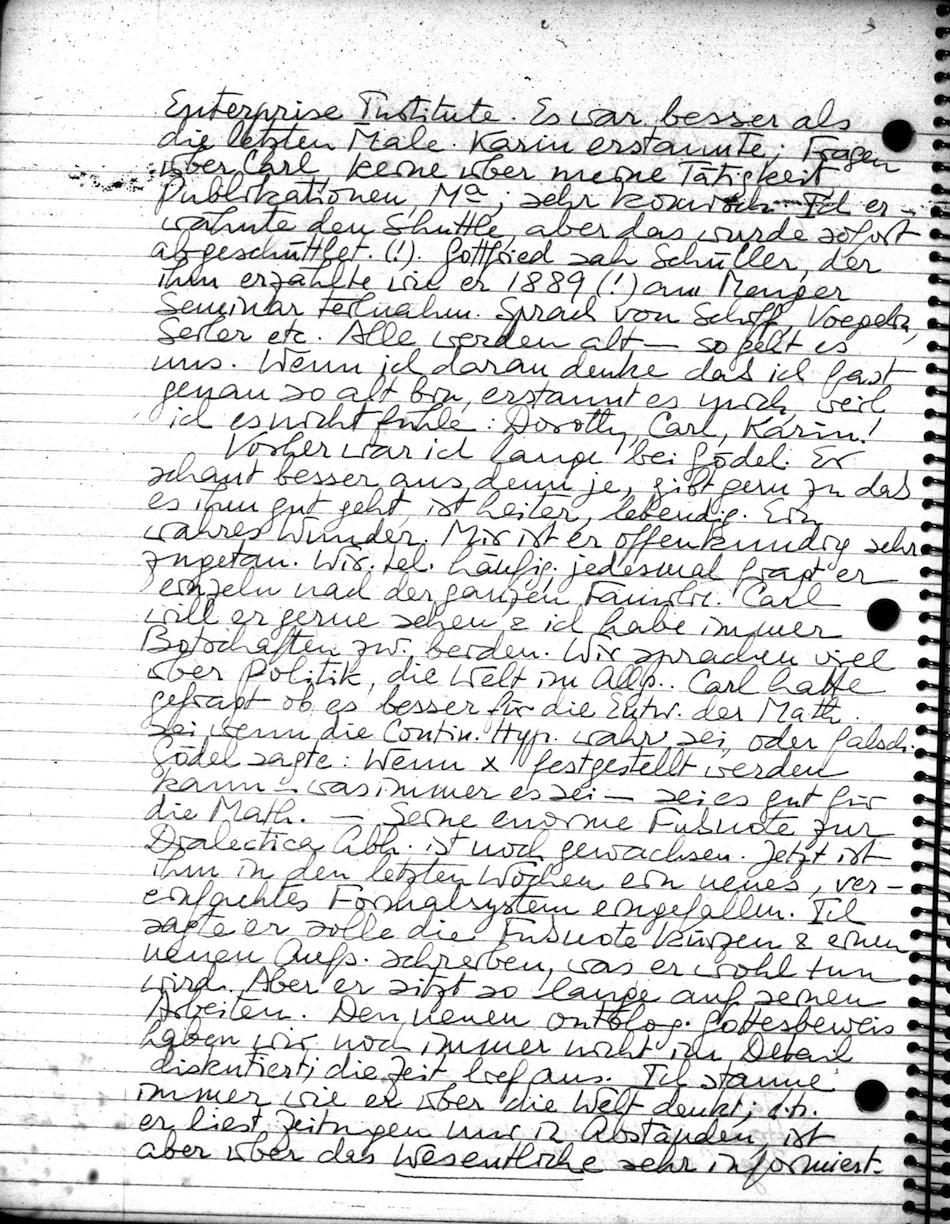 Enterprise Institute. Es war besser als
die letzten Male. Karin erstaunte; Fragen
über Carl, keine über meine Tätigkeit
Publikationen, Ma; sehr komisch. Ich er-
wähnte den Shuttle, aber das wurde sofort
abgeschüttlet. (!). Gottfried sah Schüller, der
ihm erzählte wie er 1889 (!) am Menger
Seminar teilnahm. Sprach von Schiff, Voegelin,
Seiler etc. Alle werden alt — so geht es
uns. Wenn ich daran denke das ich fast
genau so alt bin, erstaunt es mich, weil
ich es nicht fühle: Dorothy, Carl, Karin!
Vorher war ich lange bei Gödel. Er
schaut besser aus denn je, gibt gern zu das
es ihm gut geht, ist heiter, lebendig. Ein
wahres Wunder. Mir ist er offenkundig sehr
zugetan. Wir tel. häufig, jedesmal fragt er
einzeln nach der ganzen Familie. Carl
will er gerne sehen & ich habe immer
Botschaften zw. beiden. Wir sprachen viel
über Politik, die Welt im Allg.. Carl hatte
gefragt ob es besser für die Entw. der Math.
sei wenn die Contin. Hyp. wahr sei, oder falsch.
Gödel sagte: Wenn x festgestellt werden
kann – was immer es sei — sei es gut für
die Math. — Seine enorme Fußnote zur
Dialectica Abh. ist noch gewachsen. Jetzt ist
ihm in den letzten Wochen ein neues, ver-
einfachtes Formalsystem eingefallen. Ich
sagte er solle die Fußnote kürzen & einen
neuen Aufs. schreiben, was er wohl tun
wird. Aber er sitzt so lange auf seinen
Arbeiten. Den neuen ontolog. Gottesbeweis
haben wir noch immer nicht im Detail
diskutiert; die Zeit lief aus. Ich staune
immer wie er über die Welt denkt; d.h.
er liest Zeitungen nur in Abständen, ist
aber über das Wesentliche sehr informiert.